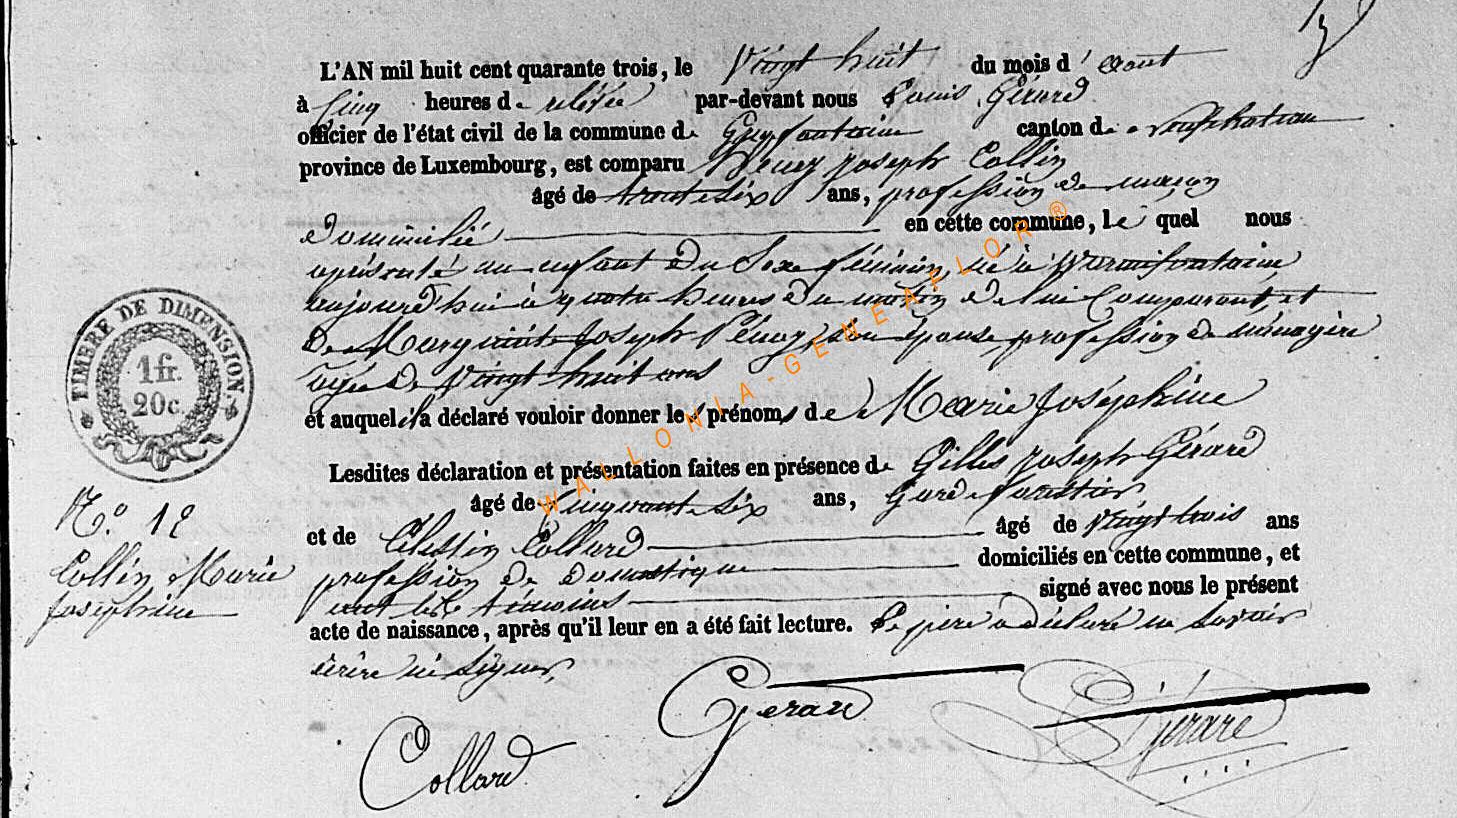 L'AN mil huit cent quarante trois, le Vingt huit du mois d' aout
à Cinq heures de relevée par-devant nous Louis Gérard
officier de l'état civil de la commune de Grapfontaine canton de neufchateau
province de Luxembourg, est comparu Henry Joseph Collin
âgé de trente Six ans, profession de maçon
domicilié en cette commune, le quel nous
a présenté un enfant du Sexe féminin, né à Warmifontaine
aujourd'hui à quatre heures du matin de lui Comparant, et
de Margueritte Joseph son épouse, profession de ménagère
agée de Vingt huit ans
et auquel il a déclaré vouloir donner les prénoms de Marie Joséphine
Lesdites déclaration et présentation faites en présence de Gilles Joseph Gérard
âgé de Cinquante Six ans, Garde forestier
et de Célestin Collard âgé de Vingt trois ans
profession de Domestique domiciliés en cette commune, et
ont les témoins signé avec nous le présent
acte de naissance, après qu'il leur en a été fait lecture. Le père a déclaré ne savoir
écrire ni Signer,
Gérard
Gérard
Collard
TIMBRE DE DIMENSION
1 fr.
20c.
N.° 12
Collin Marie
Joséphine
WALLONIA-GENEAFLOR ®